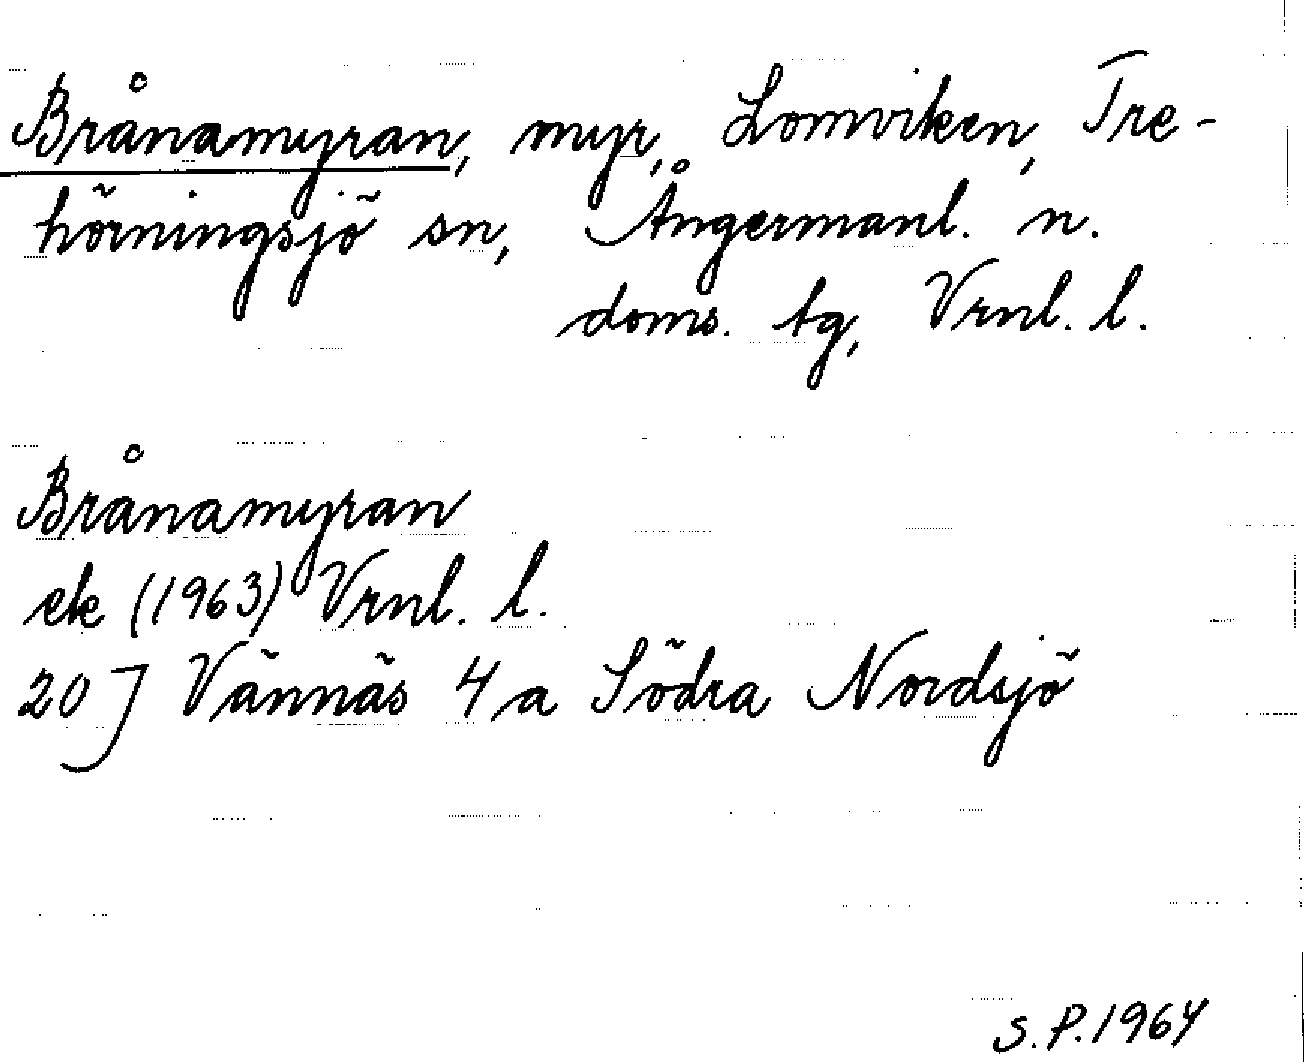 Brånamyran, myr, Lomviken, Tre-
hörningsjö sn, Ångermanl. n.
doms. tg, Vrnl. l.
Brånamyran
ek (1963) Vrnl. l.
20J Vännäs 4a Södra Nordsjö
S.P.1964